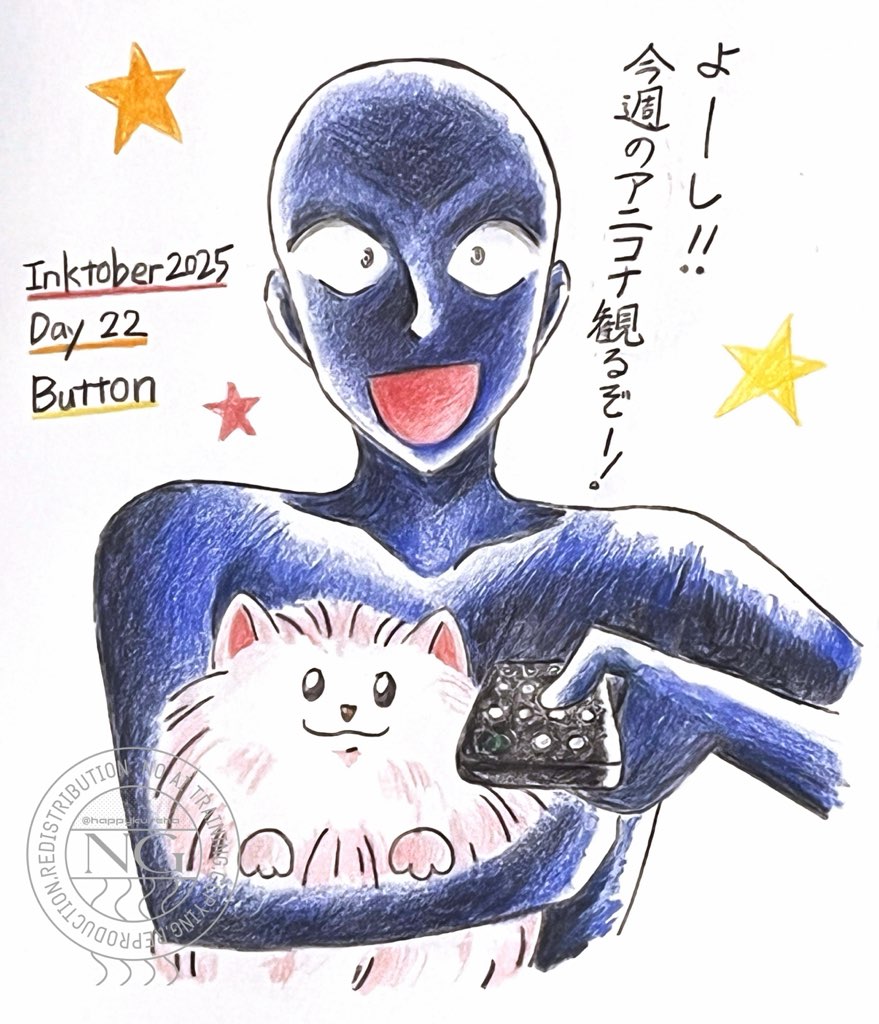 よーし!!
今週のアニコナ観るぞー!
Inktober2025
Day 22
Button
REDISTRIBUTION.NO AI TRAINING.COPYING.REPRODUCTION.
@happykuroha
NG